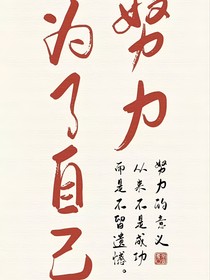 努力
为了自己
努力的意义
从来不是成功
而是不留遗憾。